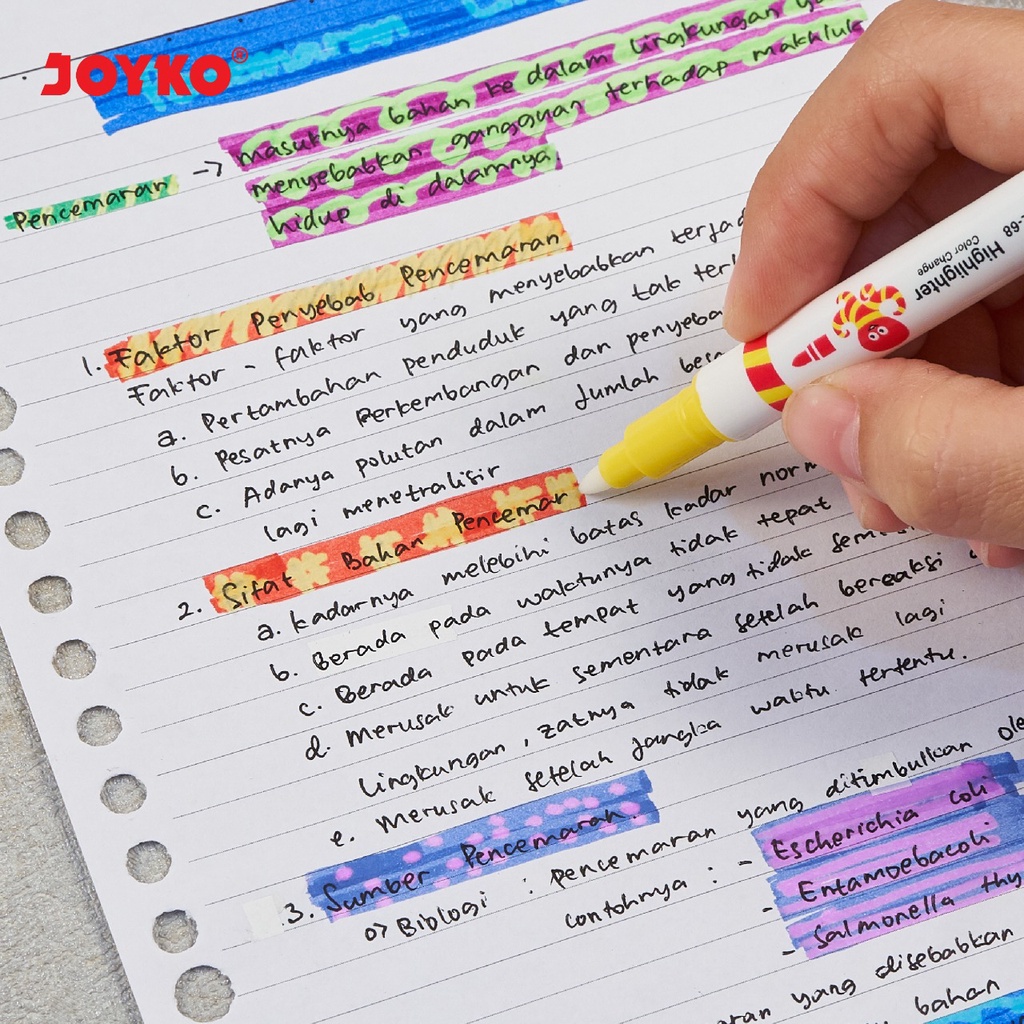 JOYKO®
masuknya bahan ke dalam lingkungan
Pencemaran → menyebabkan gangguan terhadap makhluk
hidup di dalamnya.
1. Faktor Penyebab Pencemaran
Faktor - faktor yang menyebabkan
a. Pertambahan penduduk yang tak
b. Pesatnya Perkembangan dan
c. Adanya polutan dalam Jumlah
lagi menetralisir
2. Sifat Bahan Pencemar
a. kadarnya melebihi batas kadar
b. Berada pada waktunya tidak tepat
c. Berada pada tempat yang tidak
d. Merusak untuk sementara setelah bereaksi
Lingkungan, zatnya tidak merusak lagi
e. Merusak setelah Jangka waktu tertentu.
3. Sumber Pencemaran.
o> Biologi : Pencemaran yang ditimbulkan
contohnya : - Escherichia coli
- Entamoebacoli
- Salmonella
yang disebabkan
bahan
-68 Highlighter
Color Change